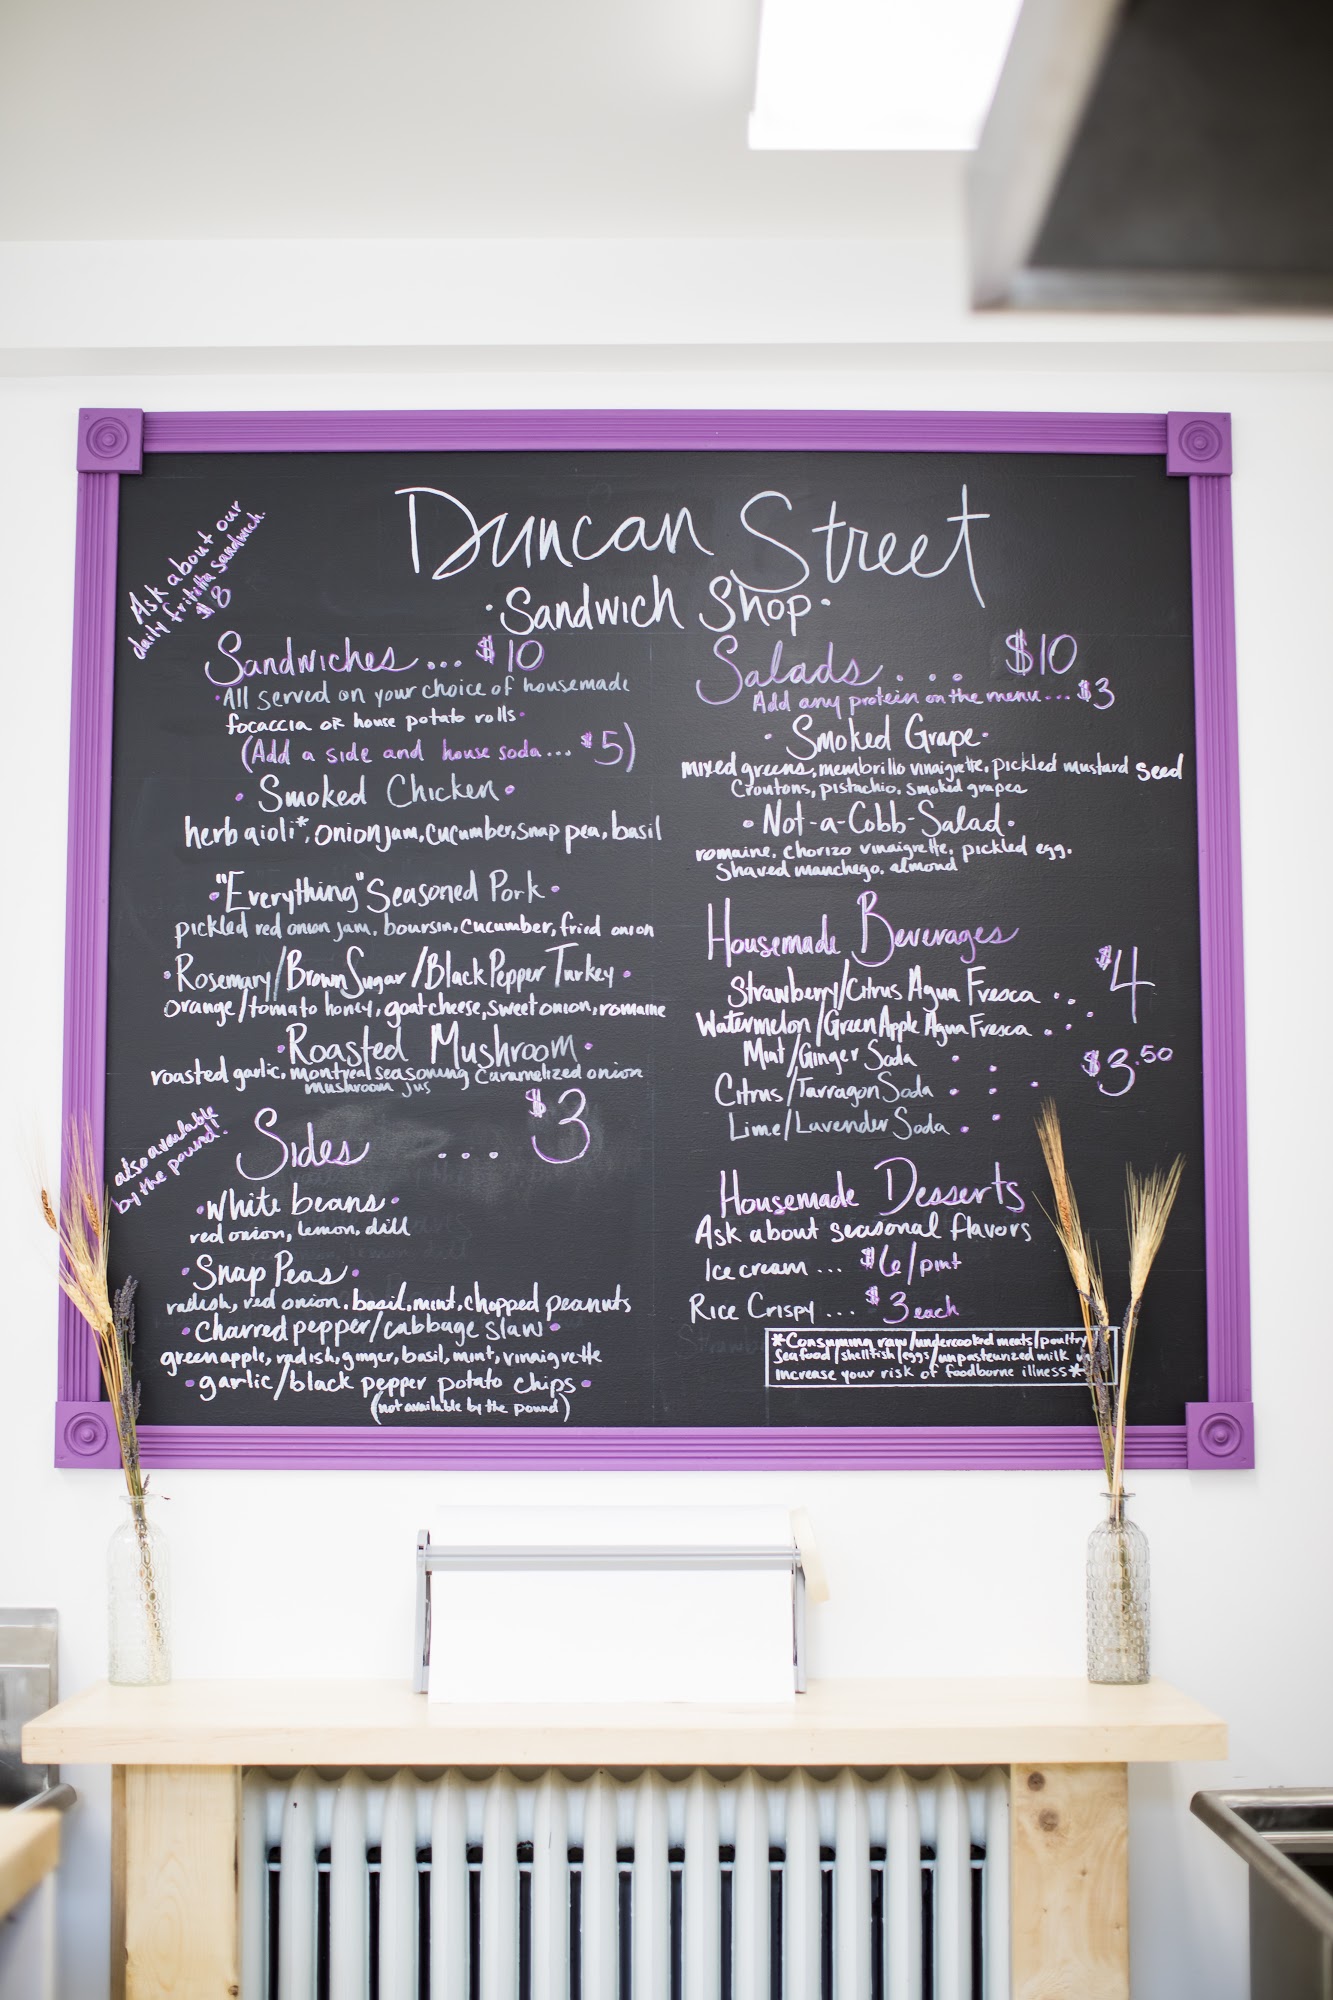 Duncan Street
·Sandwich Shop·
Ask about our
daily fritella sandwich.
$8
Sandwiches... $10
·All served on your choice of housemade
focaccia or house potato rolls·
(Add a side and house soda... $5)
·Smoked Chicken·
herb aioli*, onion jam, cucumber, snap pea, basil
·"Everything" Seasoned Pork·
pickled red onion jam, boursin, cucumber, fried onion
·Rosemary/Brown Sugar/Black Pepper Turkey·
orange/tomato honey, goat cheese, sweet onion, romaine
·Roasted Mushroom·
roasted garlic, montreal seasoning caramelized onion
mushroom jus
also available
by the pound!
Sides .... $3
·White beans·
red onion, lemon, dill
·Snap Peas·
radish, red onion, basil, mint, chopped peanuts
·Charred pepper/cabbage slaw·
green apple, radish, ginger, basil, mint, vinaigrette
·garlic/black pepper potato chips·
(not available by the pound)
Salads.... $10
Add any protein on the menu... $3
·Smoked Grape·
mixed greens, membrillo vinaigrette, pickled mustard seed
Croutons, pistachio, smoked grapes
·Not-a-Cobb-Salad·
romaine, chorizo vinaigrette, pickled egg,
Shaved manchego, almond
Housemade Beverages
Strawberry/Citrus Agua Fresca .. $4
Watermelon/Green Apple Agua Fresca ..
Mint/Ginger Soda . . $3.50
Citrus/Tarragon Soda . . .
Lime/Lavender Soda . .
Housemade Desserts
Ask about seasonal flavors
Ice cream ... $6/pint
Rice Crispy ... $3 each
*Consuming raw/undercooked meats/poultry
seafood/shellfish/eggs/unpasteurized milk
increase your risk of foodborne illness*